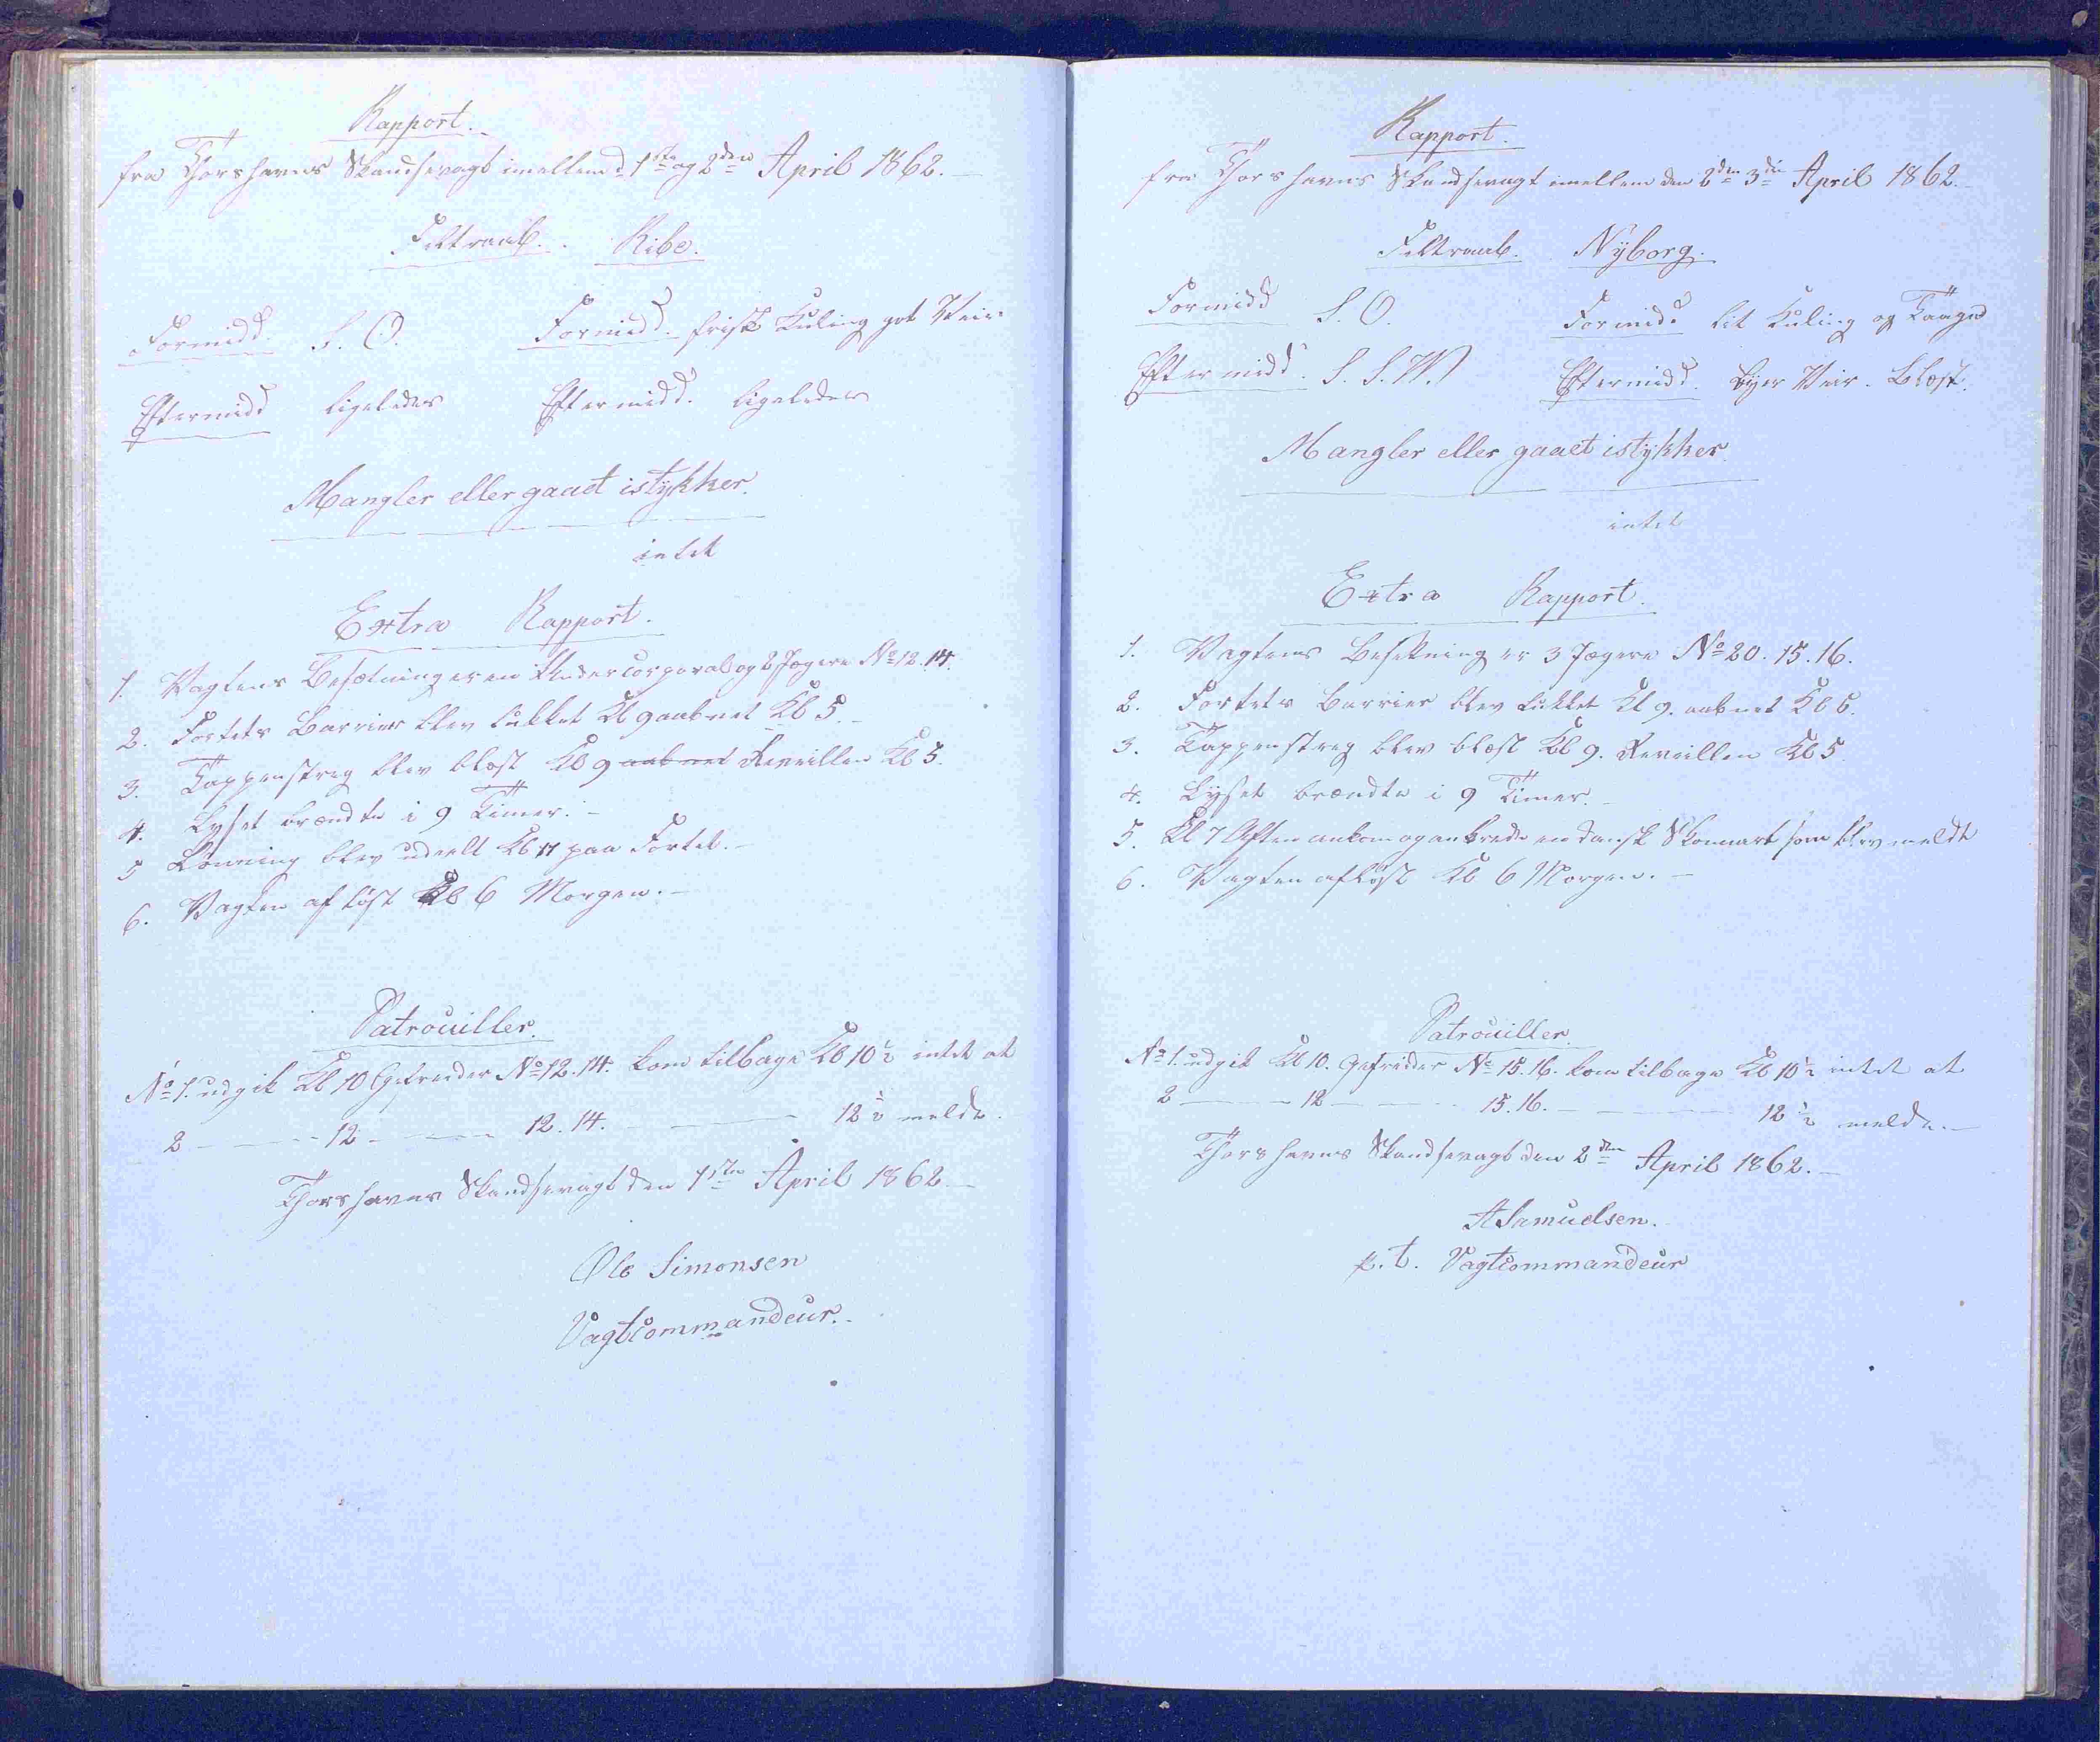 Rapport.
fra Thorshavns Skandsevagt imellem d 1ste og 2den April 1862.
Feltraab. Ribe.
Formidd. S. O. Formidd. frisk Kuling got Veir
Eftermidd ligeledes Eftermidd. ligeledes
Mangler eller gaaet istykker.
intet
Extra Rapport.
1. Vagtens Besætning er en Undercorporal og 2 Jægere No 12. 14.
2. Fortets Barrier blev lukket Kl 9 aabnet Kl 5.
3. Tappenstreg blev blæst Kl 9 aabnet Reveillen Kl 5.
4. Lyset brændte i 9 Timer.
5 Lønning blev udeelt Kl 11 paa Fortet.
6. Vagten afløst Kl 6 Morgen.
Patrouiller.
No 1. udgik Kl 10 Gefreider No 12. 14. kom tilbage Kl 10½ intet at
2 — 12 — 12. 14. — 12½ melde.
Thorshavns Skandsevagt den 1ste April 1862.
Ole Simonsen
Vagtcommandeur.
Rapport.
fra Thorshavns Skandsevagt imellem den 2den 3die April 1862.
Feltraab. Nyborg.
Formidd S. O. Formidd lit Kuling og Taaged
Eftermidd. S. S. W. Eftermidd. Byer Veir. Blæst.
Mangler eller gaaet istykker.
intet
Extra Rapport.
1. Vagtens Besetning er 3 Jægere No 20. 15. 16.
2. Fortets Barrier blev lukket Kl 9. aabnet Kl 5.
3. Tappenstreg blev blæst Kl 9. Reveillen Kl 5
4. Lyset brændte i 9 Timer.
5. Kl 7 Aften ankom og ankrede en dansk Skonnart som blev meldt
6. Vagten afløst Kl 6 Morgen.
Patrouiller.
No 1. udgik Kl 10. Gefreider No 15. 16. kom tilbage Kl 10½ intet at
2 — 12 — 15. 16. — 12½ melde.
Thorshavns Skandsevagt den 2den April 1862.
A Samuelsen.
p. t. Vagtcommandeur